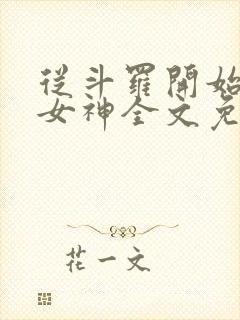 從斗羅開始
女神全文免
花一文